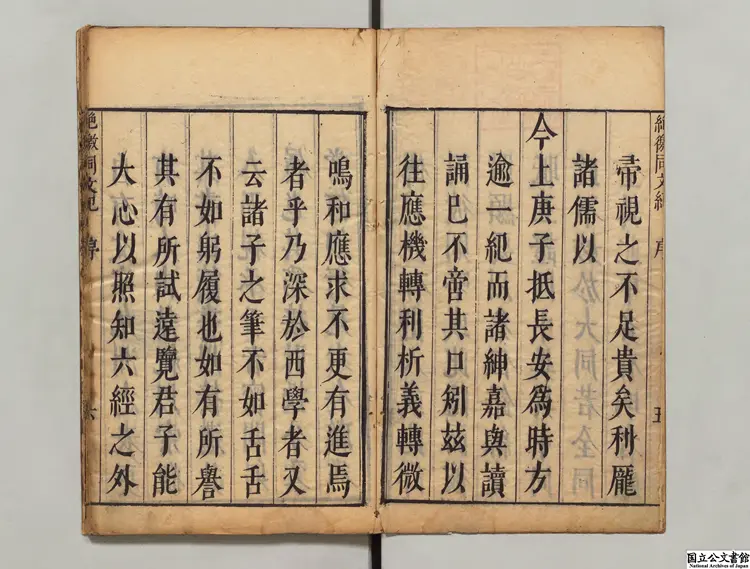 絕徼同文紀 序 五
帚視之不足貴矣利龐
諸儒以
今上庚子抵長安為時方
逾一紀而諸紳嘉與讀
誦已不啻其口矧茲以
往應機轉利析義轉微
鳴和應求不更有進焉
者乎乃深於西學者又
云諸子之筆不如舌舌
不如躬履也如有所譽
其有所試遠覽君子能
大心以照知六經之外
絕徼同文紀 序 六
国立公文書館
National Archives of Japan